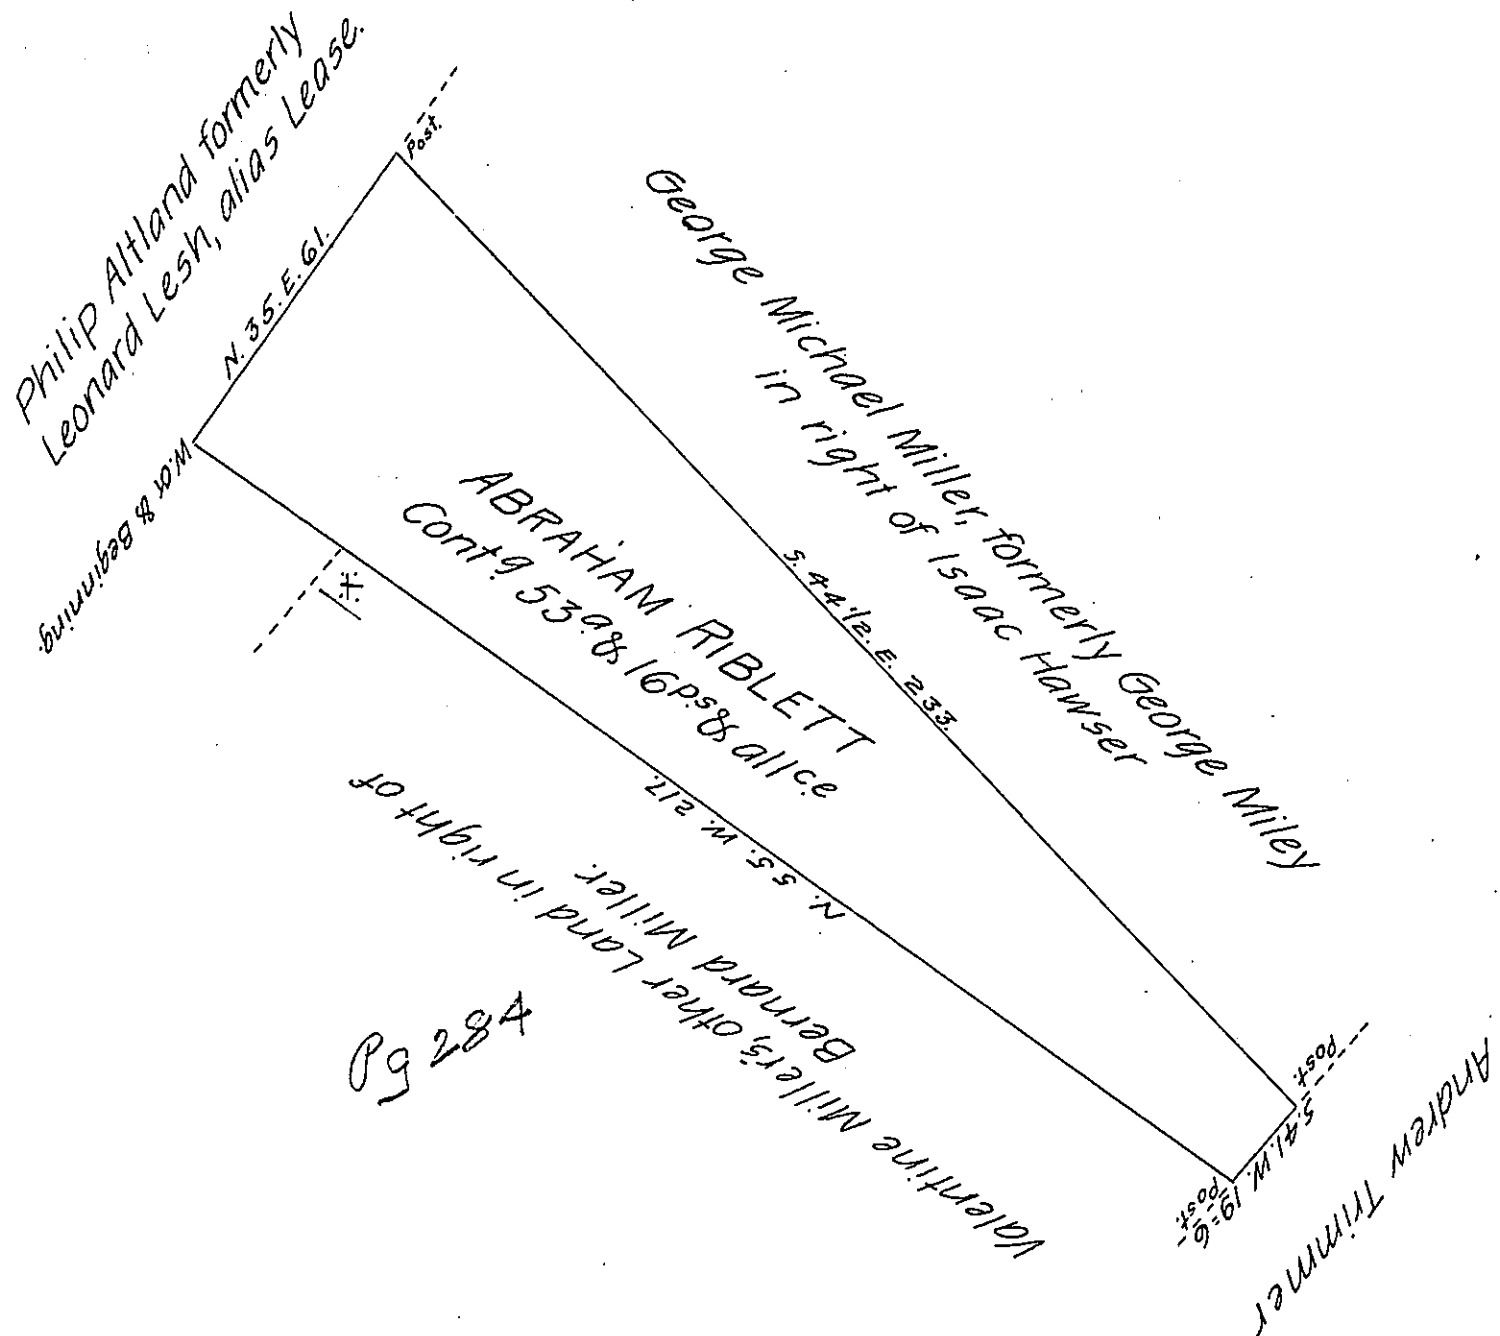 Philip Altland formerly
Leonard Lesh, alias Lease.
Post.
N. 35. E. 61.
W.or & Beginning.
George Michael Miller, formerly George Miley
in right of Isaac Hawser
S. 44 1/2. E. 233.
ABRAHAM RIBLETT
Contg 53a & 16ps & allce
N. 55. W. 217.
Valentine Miller's, other Land in right of
Bernard Miller.
Pg 284
Post.
S. 41. W. 19=6
Post.
Andrew Trimmer